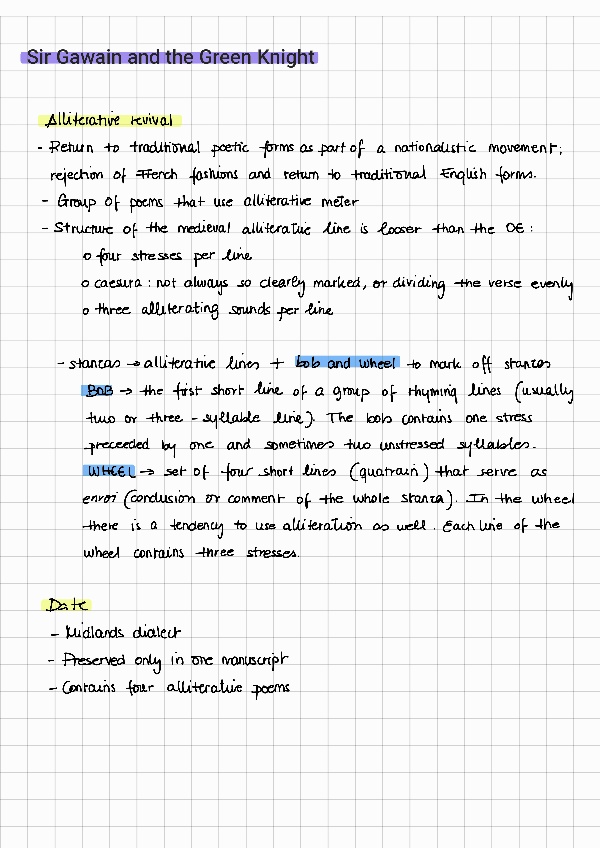 Sir Gawain and the Green Knight
Alliterative revival
- Return to traditional poetic forms as part of a nationalistic movement;
rejection of French fashions and return to traditional English forms.
- Group of poems that use alliterative meter
- Structure of the medieval alliterative line is looser than the OE:
o four stresses per line
o caesura: not always so clearly marked, or dividing the verse evenly
o three alliterating sounds per line
- stanzas → alliterative lines + bob and wheel to mark off stanzas
BOB → the first short line of a group of rhyming lines (usually
two or three-syllable line). The bob contains one stress
preceeded by one and sometimes two unstressed syllables.
WHEEL → set of four short lines (quatrain) that serve as
envoi (conclusion or comment of the whole stanza). In the wheel
there is a tendency to use alliteration as well. Each line of the
wheel contains three stresses.
Date
- Midlands dialect
- Preserved only in one manuscript
- Contains four alliterative poems